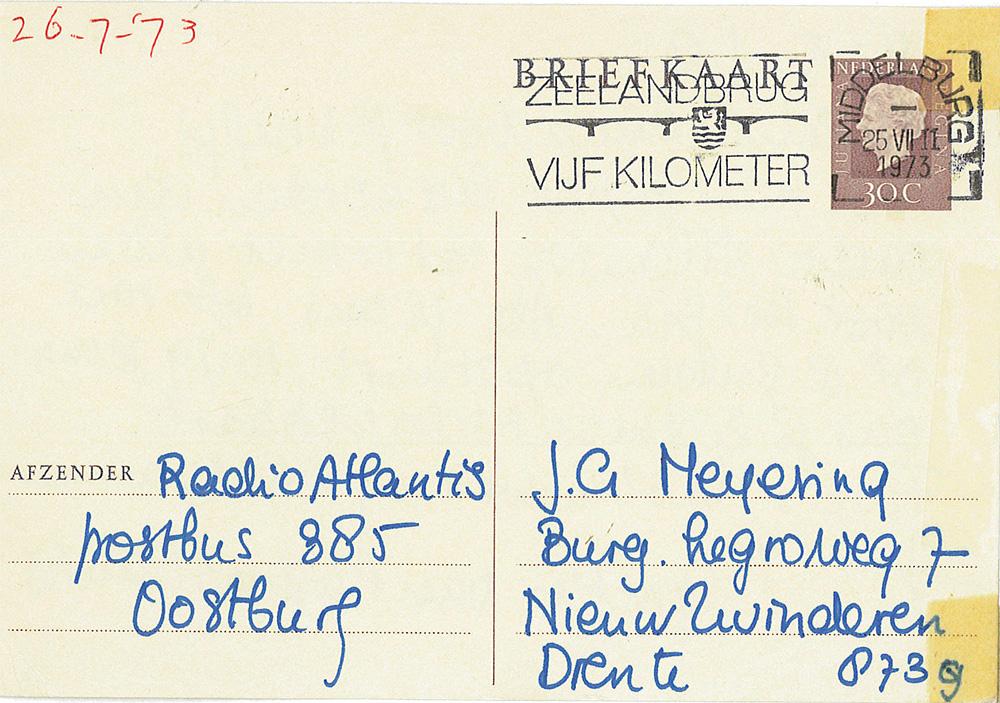 26-7-'73
BRIEFKAART
ZEELANDBRUG
VIJF KILOMETER
NEDERLAND
JULIANA REGINA
30 C
MIDDELBURG 1
25 VII 11
1973
AFZENDER Radio Atlantis
postbus 385
Oostburg
J.G Meyering
Burg. Legroweg 7
Nieuw Zwinderen
Drente 873 g